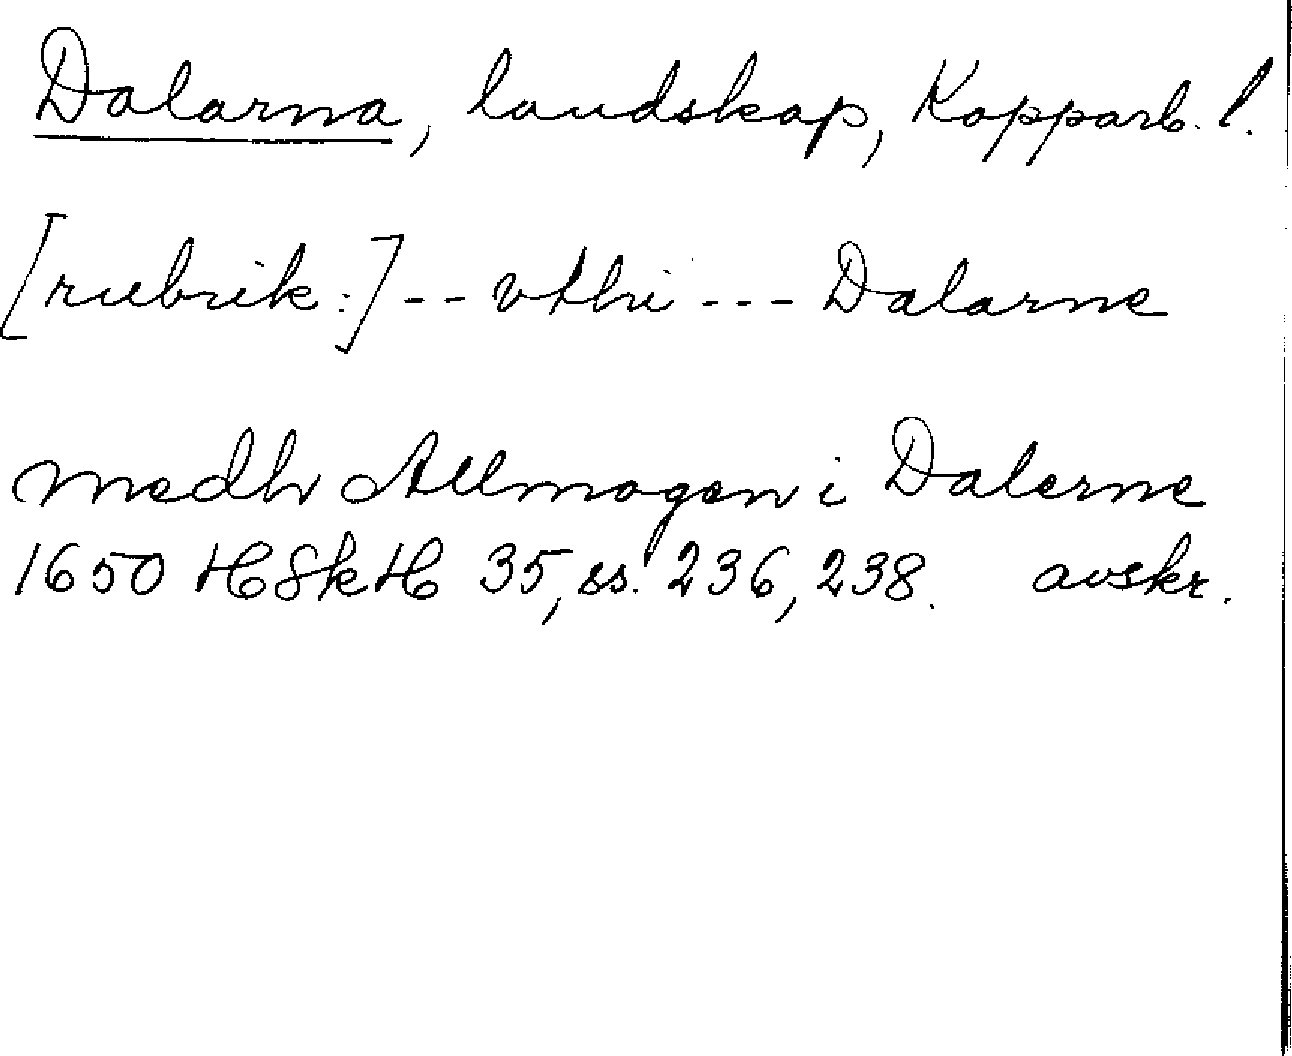 Dalarna, landskap, Kopparb. l.
[rubrik:] -- vthi --- Dalarne
medh Allmogen i Dalerne
1650 HSkH 35, ss. 236, 238. avskr.